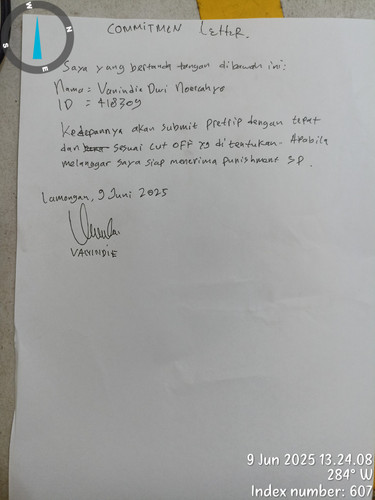 COMMITMEN LETTER.
Saya yang bertanda tangan dibawah ini:
Nama = Vanindia Dwi Noercahyo
ID = 418309
Kedepannya akan submit Preflip dengan tepat
dan sesuai cut OFF yg ditentukan. Apabila
melanggar saya siap menerima punishment SP.
Lamongan, 9 Juni 2025
VANINDIE
9 Jun 2025 13.24.08
284° W
Index number: 607
N
S
W